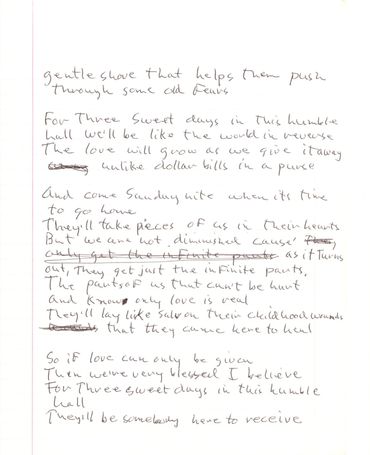 gentle shove that helps them push
through some old fears
For Three sweet days in this humble
hall we'll be like the world in reverse
The love will grow as we give it away
unlike dollar bills in a purse
And come Sunday nite when its time
to go home
They'll take pieces of us in their hearts
But we are not diminished cause'
only get the infinite parts as it turns
out, They get just the infinite parts,
The parts of us that can't be hurt
and know only love is real
They'll lay like salve on their childhood wounds
that they came here to heal
So if love can only be given
Then we're very blessed I believe
For Three sweet days in this humble
hall
They'll be somebody here to receive